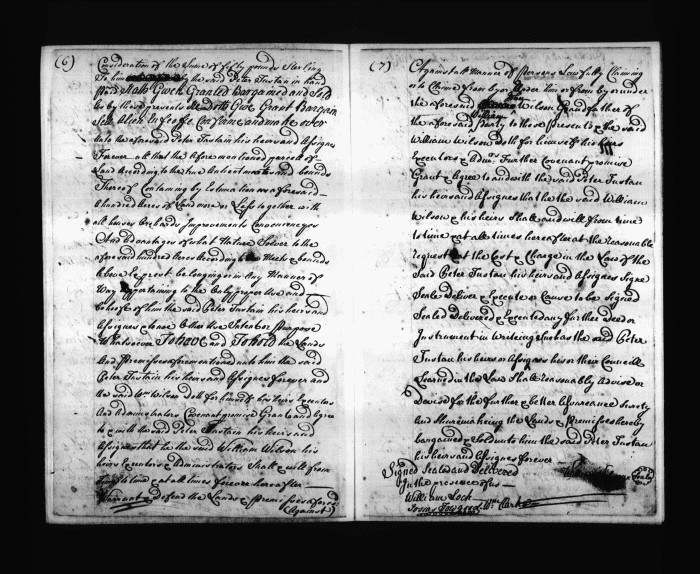 (6)
Consideration of the Sume of fifty pounds Sterling
To him by the said Peter Tustain in hand
paid Hath Given Granted Bargained and Sold
& by these presents doth Give Grant Bargain
Sell Alien Enfeoffe Confirme and make over
Unto the aforesaid Peter Tustain his heirs and Assignes
Forever all that the afore mentioned parcell of
Land According to the true Antient meets and bounds
Thereof Containing by Estimation as aforesaid
A hundred Acres of Land more or Less together with
all houses Orchards Improvements Conveniencyes
And Advantages of what Nature Soever to the
aforesaid hundred Acres According to Meets & bounds
Above Exprest belonging or in Any Manner of
Way Appertaining to the Only proper Use and
behoofe of him the said Peter Tustain his heirs and
Assignes & to no Other Use Intent or Purpose
Whatsoever To have and To hold the Lands
And Premises aforementioned unto him the said
Peter Tustain his heirs and Assignes forever and
the said Wm. Wilson doth for himself his heirs Executors
And Administrators Covenant promise Grant and Agree
to & with the said Peter Tustain his heirs and
Assignes that he the said William Wilson his
heirs Executors & Administrators Shall & will from
time to time & at all times forever hereafter
Warrant & defend the Lands & Premisses aforesd
(Against)
(7)
Against all manner of Persons Lawfully Claiming
or to Claime from by or Under him or from by or under
the aforesaid Wilson Grandfather of
William
the aforesaid Party to these Presents & the said
William Wilson doth for himself his heirs
Executors & Admrs. Further Covenant promise
Grant & Agree to and with the said Peter Tustain
his heirs and Assignes that he the said William
Wilson & his heirs Shall and will from time
to time & at all times hereafter at the reasonable
request & at the Cost & Charge in the Law of the
Said Peter Tustain his heirs and Assignes Signe
Seale Deliver & Execute or Cause to be Signed
Sealed Delivered & Executed any further deed or
Instrument in writeing Such as the said Peter
Tustain his heirs or Assignes his or their Councill
Learned in the Law Shall reasonably Advise or
Devise for the further & better Assureance Surety
And Sure making the Lands & Premisses hereby
bargained & Sold unto him the said Peter Tustain
his heirs and Assignes forever
Signed Sealed and Delivered
In the presence of us
William Lock
Josias Towgood Wm. Clark